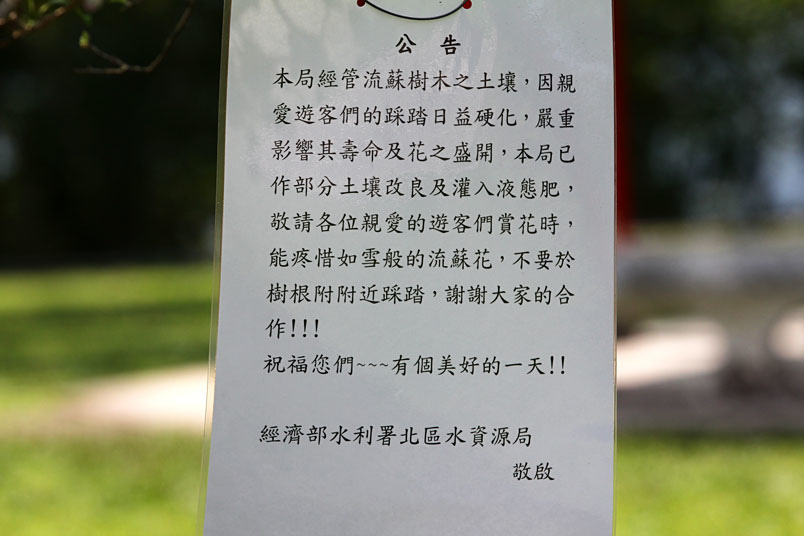 公告
本局經管流蘇樹木之土壤，因親
愛遊客們的踩踏日益硬化，嚴重
影響其壽命及花之盛開，本局已
作部分土壤改良及灌入液態肥，
敬請各位親愛的遊客們賞花時，
能疼惜如雪般的流蘇花，不要於
樹根附附近踩踏，謝謝大家的合
作!!!
祝福您們~~~有個美好的一天!!
經濟部水利署北區水資源局
敬啟